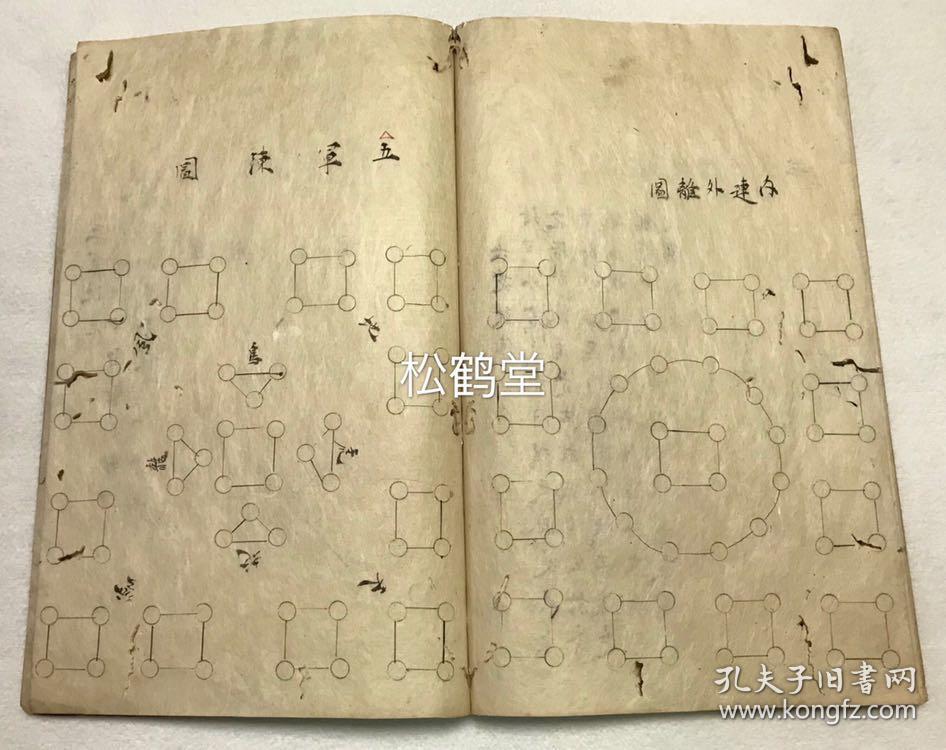 内連外離圖
五軍陳圖
地
風
鳥
虎
龍
蛇
天
雲
松鹤堂
孔夫子旧書网
www.kongfz.com